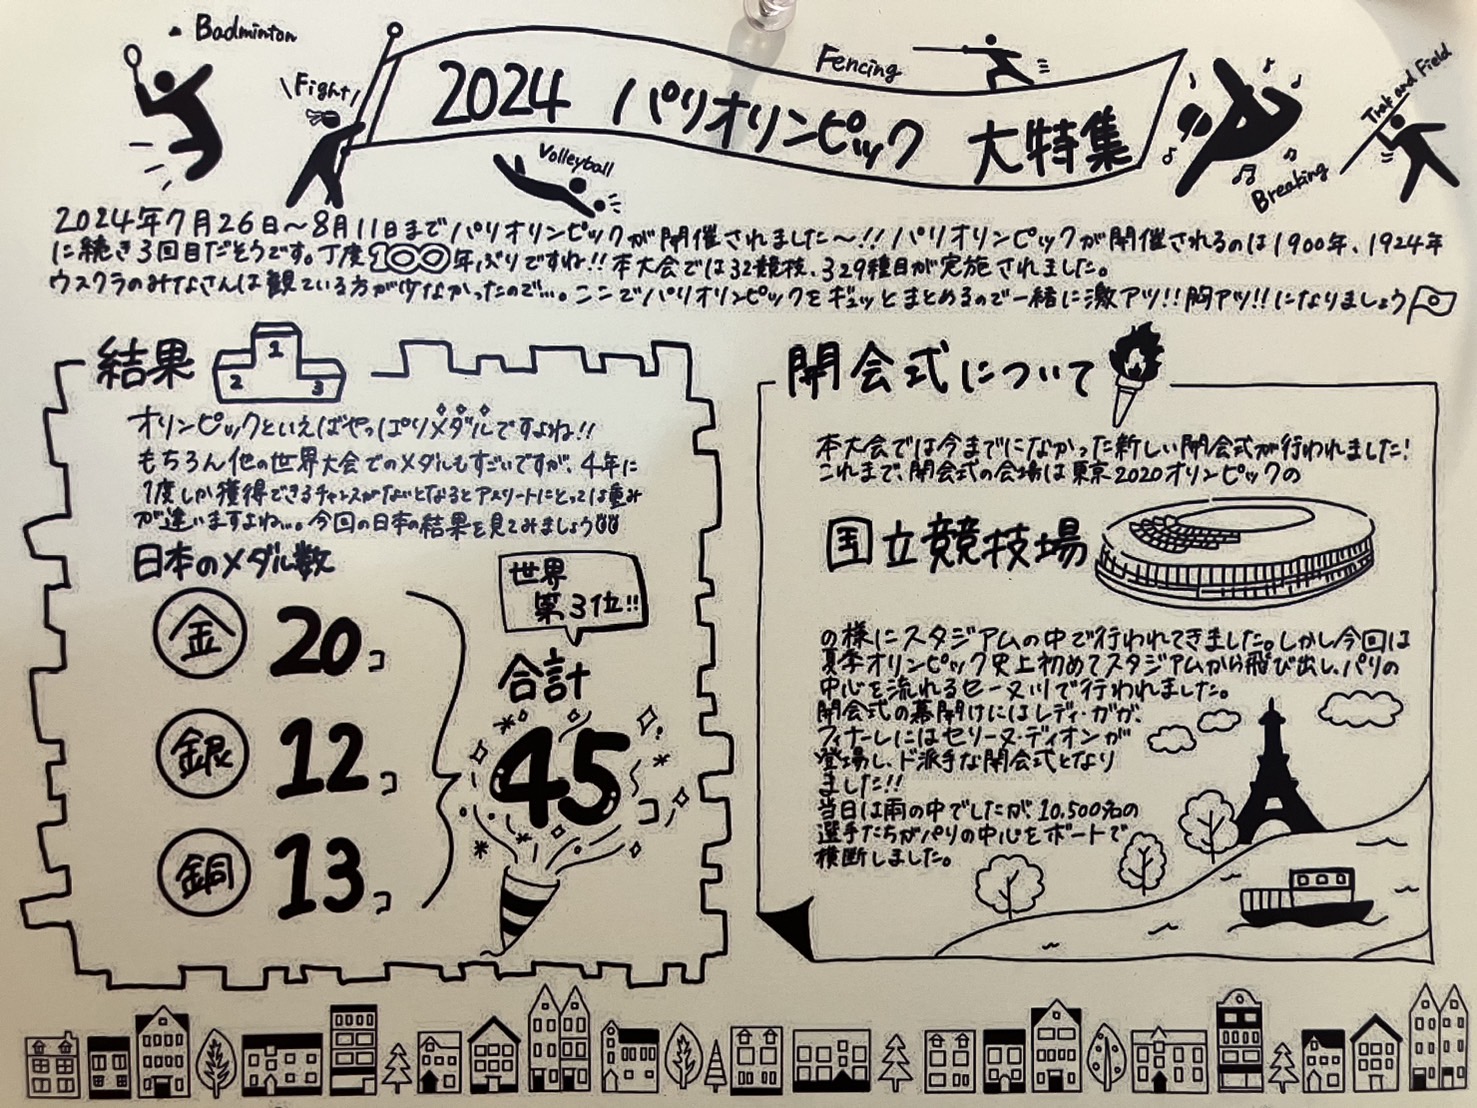 Badminton
\Fight/
2024 パリオリンピック 大特集
Fencing
Volleyball
Breaking
Trak and Field
2024年7月26日～8月11日までパリオリンピックが開催されました～!! パリオリンピックが開催されるのは1900年、1924年
に続き3回目だそうです。丁度100年ぶりですね!! 本大会では32競技、329種目が実施されました。
ウスクラのみなさんは観ている方が少なかったので…。ここでパリオリンピックをギュッとまとめるので一緒に激アツ!!胸アツ!!になりましょう
結果
1
2
3
オリンピックといえばやっぱりメダルですよね!!
もちろん他の世界大会でのメダルもすごいですが、4年に
1度しか獲得できるチャンスがないとなるとアスリートにとっては重み
が違いますよね…。今回の日本の結果を見てみましょう!!!!
日本のメダル数
金 20コ
銀 12コ
銅 13コ
世界
第3位!!
合計
45コ
開会式について
本大会では今までになかった新しい開会式が行われました!
これまで、開会式の会場は東京2020オリンピックの
国立競技場
の様にスタジアムの中で行われてきました。しかし今回は
夏季オリンピック史上初めてスタジアムから飛び出し、パリの
中心を流れるセーヌ川で行われました。
開会式の幕開けにはレディ・ガガ、
フィナーレにはセリーヌ・ディオンが
登場し、ド派手な開会式となり
ました!!
当日は雨の中でしたが、10,500名の
選手たちがパリの中心をボートで
横断しました。